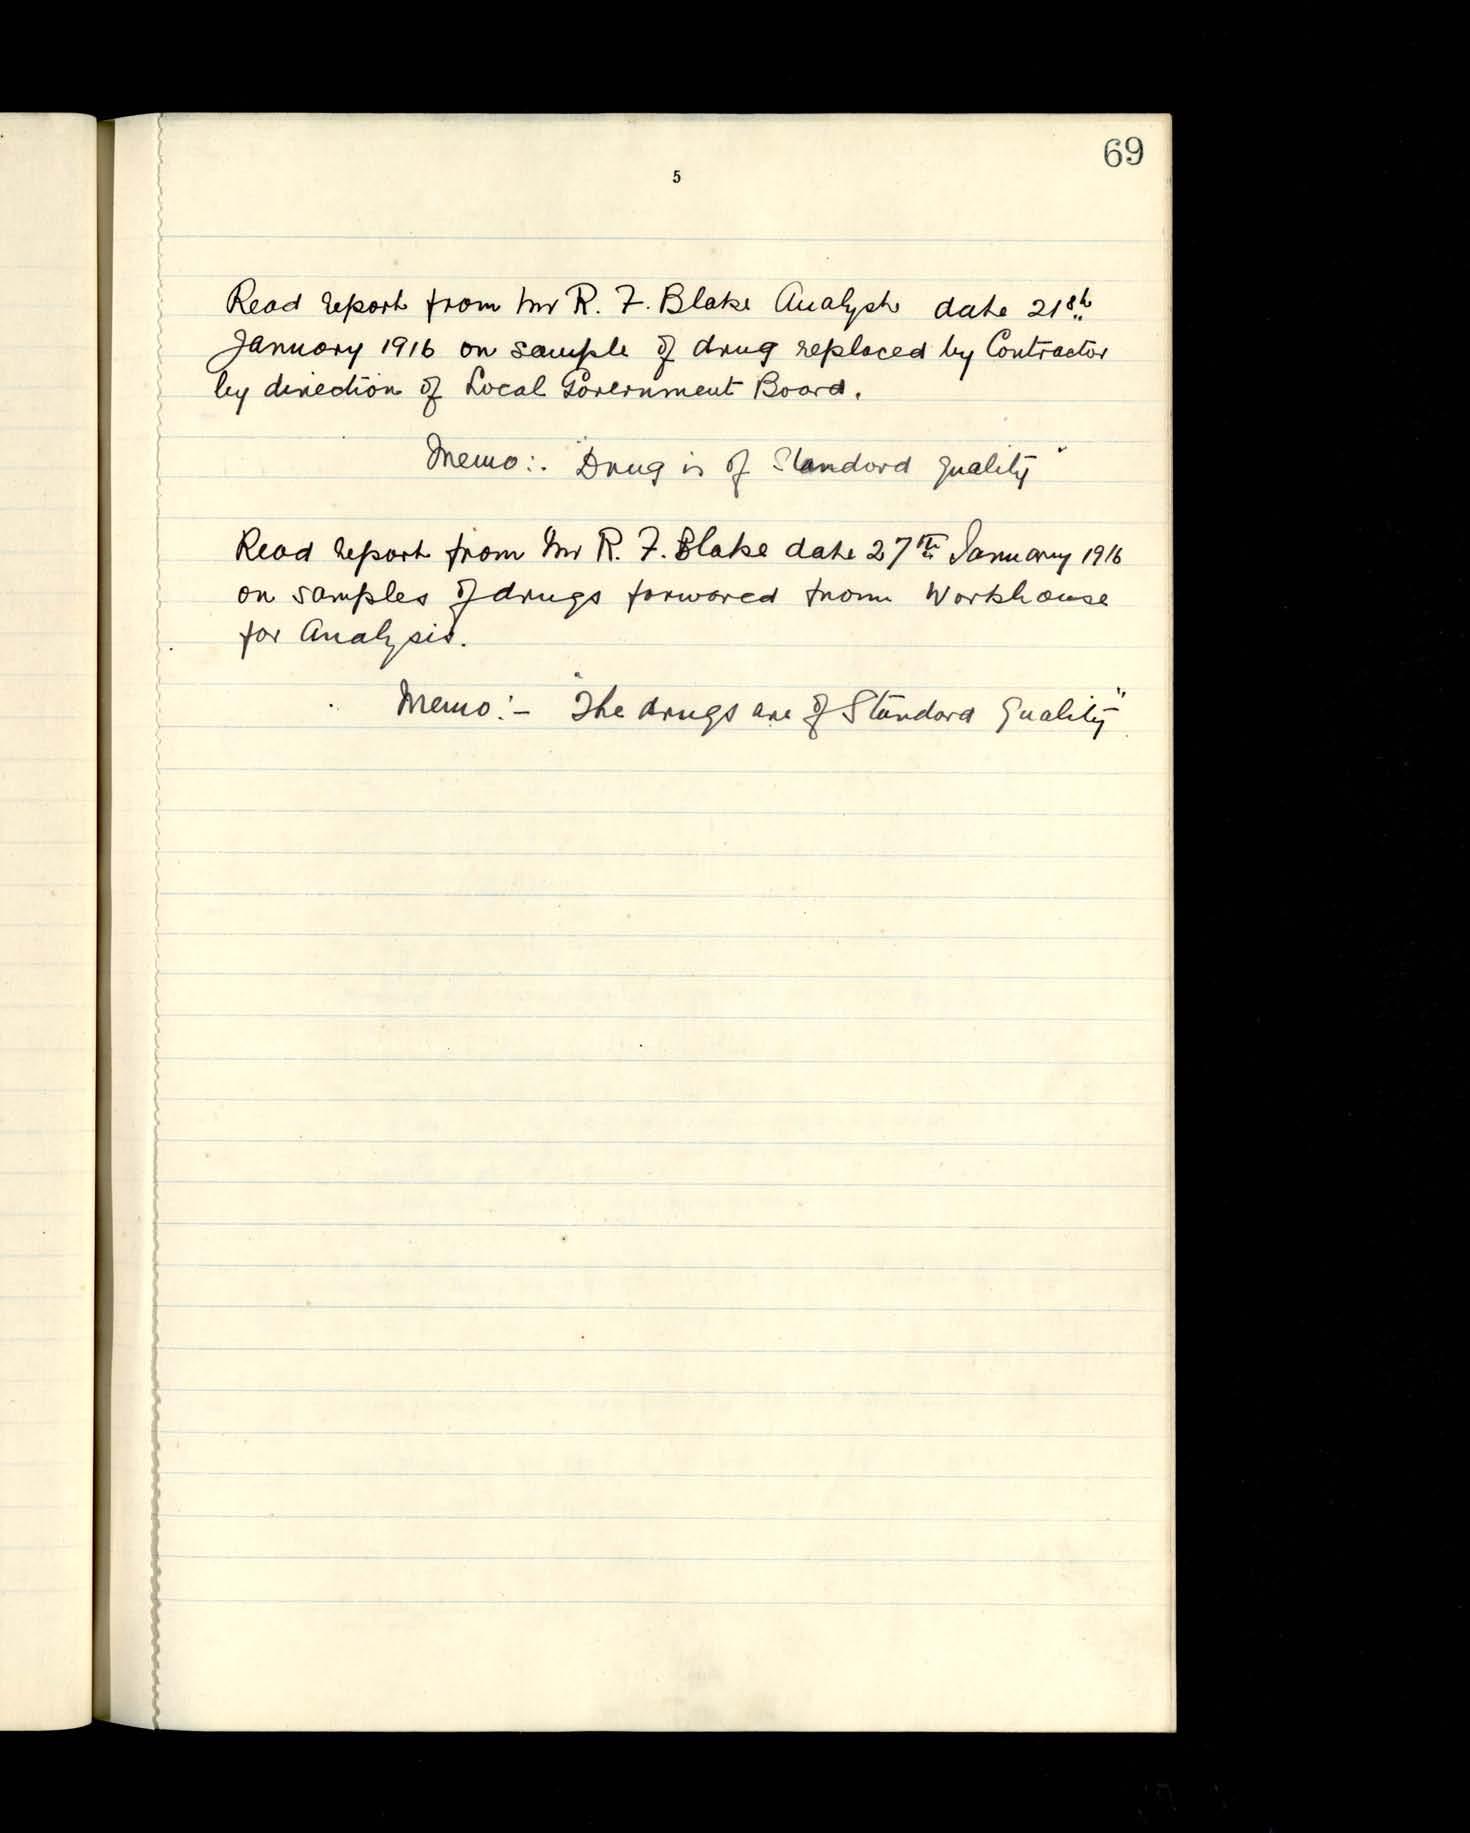 69
5
Read report from Mr R. F. Blake Analyst date 21st
January 1916 on sample of drug replaced by Contractor
by direction of Local Government Board.
Memo:. "Drug is of Standard quality"
Read report from Mr R. F. Blake date 27th January 1916
on samples of drugs forwared from Workhouse
for Analysis.
Memo:- "The drugs are of Standard Quality"